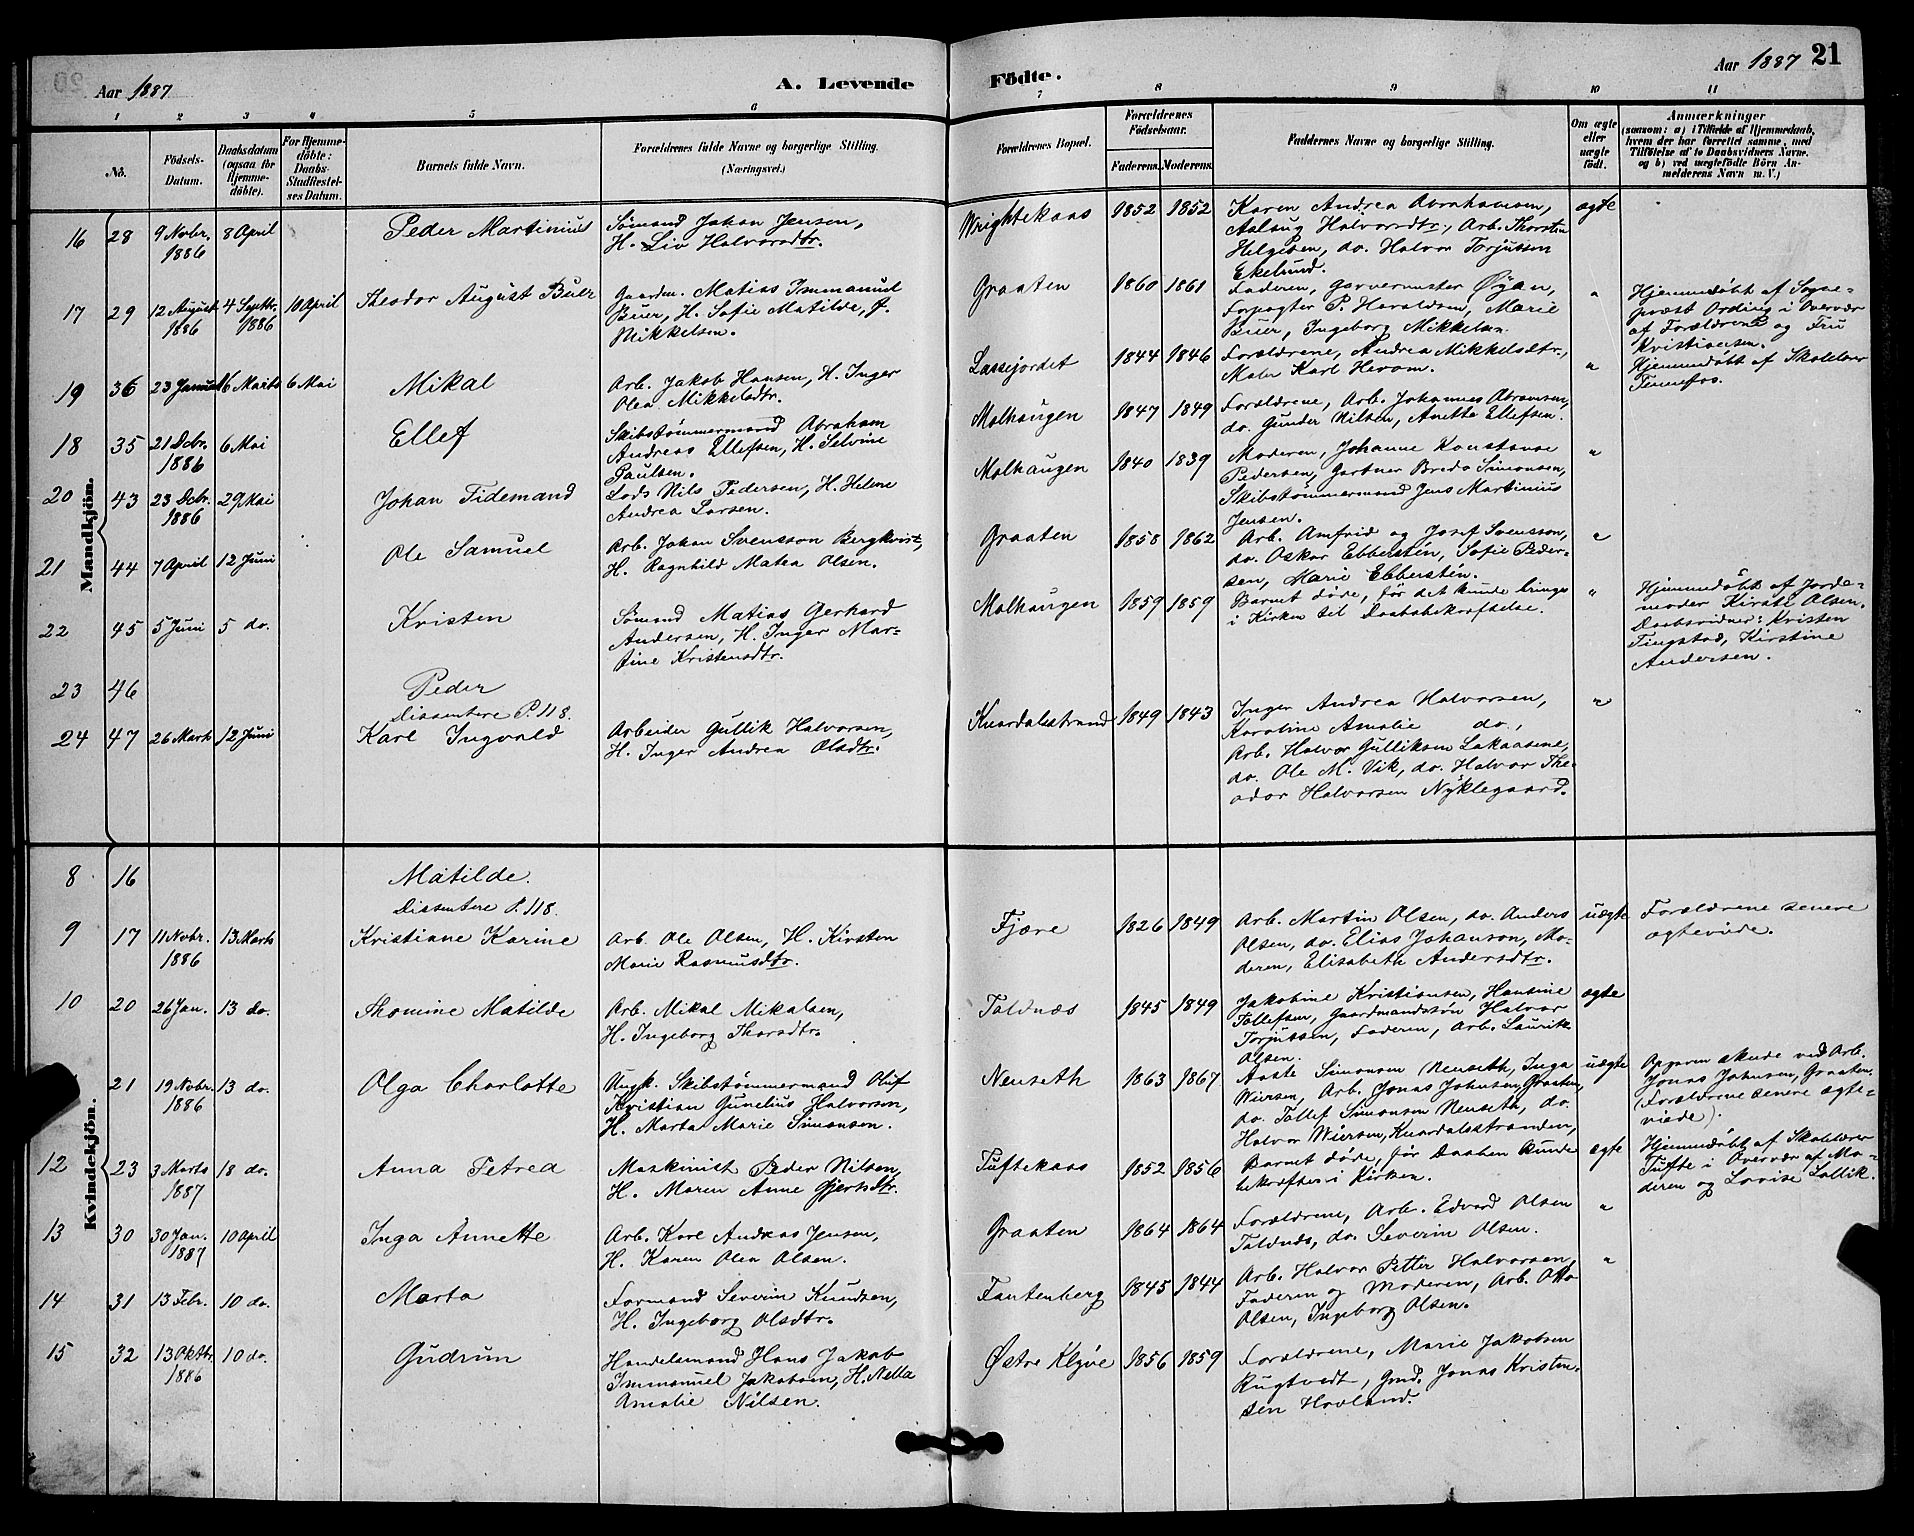 Aar 1887
A. Levende
Fødte.
Aar 1887
21
1 2 3 4 5 6
7 8 9 10 11
No.
Födsels-
Datum.
Daabsdatum
(ogsaa for
Hjemme-
döbte).
For Hjemme-
döbte:
Daabs-
Stadfæstel-
ses Datum.
Barnets fulde Navn.
Forældrenes fulde Navne og borgerlige Stilling.
(Næringsvei.)
Forældrenes Bopæl.
Forældrenes
Födselsaar.
Faderens. Moderens.
Faddernes Navne og borgerlige Stilling.
Om ægte
eller
uægte
födt.
Anmærkninger
(saasom: a) i Tilfælde af Hjemmedaab,
hvem der har forrettet samme, med
Tilföielse af to Daabsvidners Navne,
og b) ved uægtefödte Börn An-
melderens Navn m. V.)
Mandkjön.
16 28 9 Novbr. 1886 8 April
Peder Martinius
Sømand Johan Jensen,
H. Liv Halvorsdtr.
Wrightekaas 1852 1852
Karen Andrea Abrahamsen,
Aslaug Halvorsdtr., Arb. Thorsten
Helgesen, do. Halvor Torjussen
Ekelund.
ægte
17 29 12 August 1886 4 Septbr. 1886 10 April
Theodor August Buer
Gaardm. Matias Immanuel
Buer, H. Sofie Matilde, f.
Mikkelsen.
Graaten 1860 1861
Faderen, Garvermester Øyan,
Forpagter P. Haraldsen, Marie
Buer, Ingeborg Mikkelsen.
"
Hjemmedøbt af Sogne-
præst Ording i Overvær
af Forældrene og Fru
Kristiansen.
19 36 23 Januar 6 Marts 6 Mai
Mikal
Arb. Jakob Hansen, H. Inger
Olea Mikkelsdtr.
Lassejordet 1844 1846
Forældrene, Andrea Mikkelsdtr.,
Maler Karl Herom.
"
Hjemmedøbt af Skolelærer
Tinnefos.
18 35 21 Decbr. 1886 6 Mai
Ellef
Skibstømmermand Abraham
Andreas Ellefsen, H. Selvine
Paulsen.
Molhaugen 1847 1849
Forældrene, Arb. Johannes Abramsen,
do. Gunder Nilsen, Anette Ellefsen.
20 43 23 Decbr. 1886 29 Mai
Johan Tidemand
Lods Nils Pedersen, H. Helene
Andrea Larsen.
Molhaugen 1840 1839
Moderen, Johanne Konstanse
Pedersen, Gartner Bredo Simonsen,
Skibstømmermand Jens Martinius
Jensen.
"
21 44 7 April 12 Juni
Ole Samuel
Arb. Johan Svensson Bergkvist,
H. Ragnhild Matea Olsen.
Graaten 1858 1862
Arb. Amfrid og Josef Svensson,
do. Oskar Ebberstén, Sofie Peder-
sen, Marie Ebberstén.
"
22 45 5 Juni 5 do.
Kristen
Sømand Matias Gerhard
Andersen, H. Inger Mar-
tine Kristensdtr.
Molhaugen 1859 1859
Barnet døde, før det kunde bringes
i Kirken til Daabsbekræftelse.
"
Hjemmedøbt af Jorde-
moder Kirsti Olsen.
Daabsvidner: Kristen
Tingstad, Kirstine
Andersen.
23 46
Peder
Dissentere P. 118.
24 47 26 Marts 12 Juni
Karl Ingvald
Arbeider Gullik Halvorsen,
H. Inger Andrea Olsdtr.
Knardalsstrand 1849 1843
Inger Andrea Halvorsen,
Karoline Amalie do.,
Arb. Halvor Gulliksen Lakaasene,
do. Ole M. Vik, do. Halvor The-
odor Halvorsen Nyklegaard.
"
Kvindekjön.
8 16
Matilde.
Dissentere P. 118.
9 17 11 Novbr. 1886 13 Marts
Kristiane Karine
Arb. Ole Olsen, H. Kirsten
Marie Rasmusdtr.
Fjære 1826 1849
Arb. Martin Olsen, do. Anders
Olsen, do. Elias Johanson, Mo-
deren, Elisabeth Andersdtr.
uægte
Forældrene senere
ægteviede.
10 20 26 Jan. 13 do.
Thomine Matilde
Arb. Mikal Mikalsen,
H. Ingeborg Thorsdtr.
Toldnæs 1845 1849
Jakobine Kristiansen, Hansine
Tollefsen, Gaardmandssøn Halvor
Torjussen, Faderen, Arb. Laurits
Olsen.
ægte
21 19 Novbr. 1886 13 do.
Olga Charlotte
Ungk. Skibstømmermand Oluf
Kristian Gunelius Halvorsen,
H. Marta Marie Simonsen.
Nenseth 1863 1867
Aaste Simonsen Nenseth, Inga
Wiersen, Arb. Jonas Johnsen Graaten,
do. Tollef Simonsen Nenseth, do.
Halvor Wiersen, Knardalsstranden,
uægte
Opgaven skede ved Arb.
Jonas Johnsen, Graaten.
(Forældrene senere ægte-
viede).
12 23 3 Marts 1887 18 do.
Anna Petrea
Maskinist Peder Nilsen,
H. Maren Anne Gjertsdtr.
Tuftekaas 1852 1856
Barnet døde, før Daaben kunde
bekræftes i Kirken.
ægte
Hjemmedøbt af Skolelærer
Tufte i Overvær af Mo-
deren og Lovise Lallik.
13 30 30 Jan. 1887 10 April
Inga Annette
Arb. Karl Andreas Jensen,
H. Karen Olea Olsen.
Graaten 1864 1864
Forældrene, Arb. Edvard Olsen
Toldnæs, do. Severin Olsen.
"
14 31 13 Febr. 10 do.
Marta
Formand Severin Knudsen,
H. Ingeborg Olsdtr.
Fantenberg 1845 1844
Arb. Halvor Petter Halvorsen,
Faderen og Moderen, Arb. Otto
Olsen, Ingeborg Olsen.
"
15 32 13 Oktbr. 1886 10 do.
Gudrun
Handelsmand Hans Jakob
Immanuel Jakobsen, H. Netta
Amalie Nilsen.
Østre Klyve 1856 1859
Forældrene, Marie Jakobsen
Rugtvedt, Gmd. Jonas Kristen-
sen Hovland.